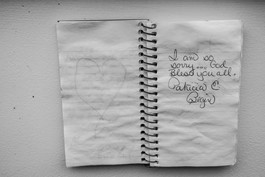 I am so
sorry... God
Bless you all.
Patricia C